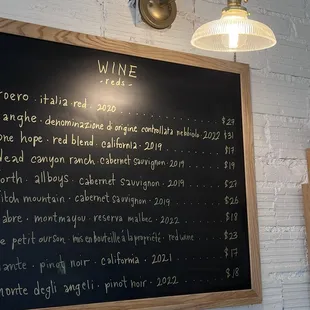 WINE
- reds -
roero · italia · red · 2020 $29
langhe · denominazione di origine controllata nebbiolo 2022 $31
one hope · red blend · california · 2019 $17
dead canyon ranch · cabernet sauvignon · 2019 $19
north · allboys · cabernet sauvignon · 2019 $27
itch mountain · cabernet sauvignon · 2019 $26
abre · montmayou · reserva malbec · 2022 $18
e petit ourson · mis en bouteille à la propriété · red wine $23
ante · pinot noir · california · 2021 $17
monte degli angeli · pinot noir · 2022 $18